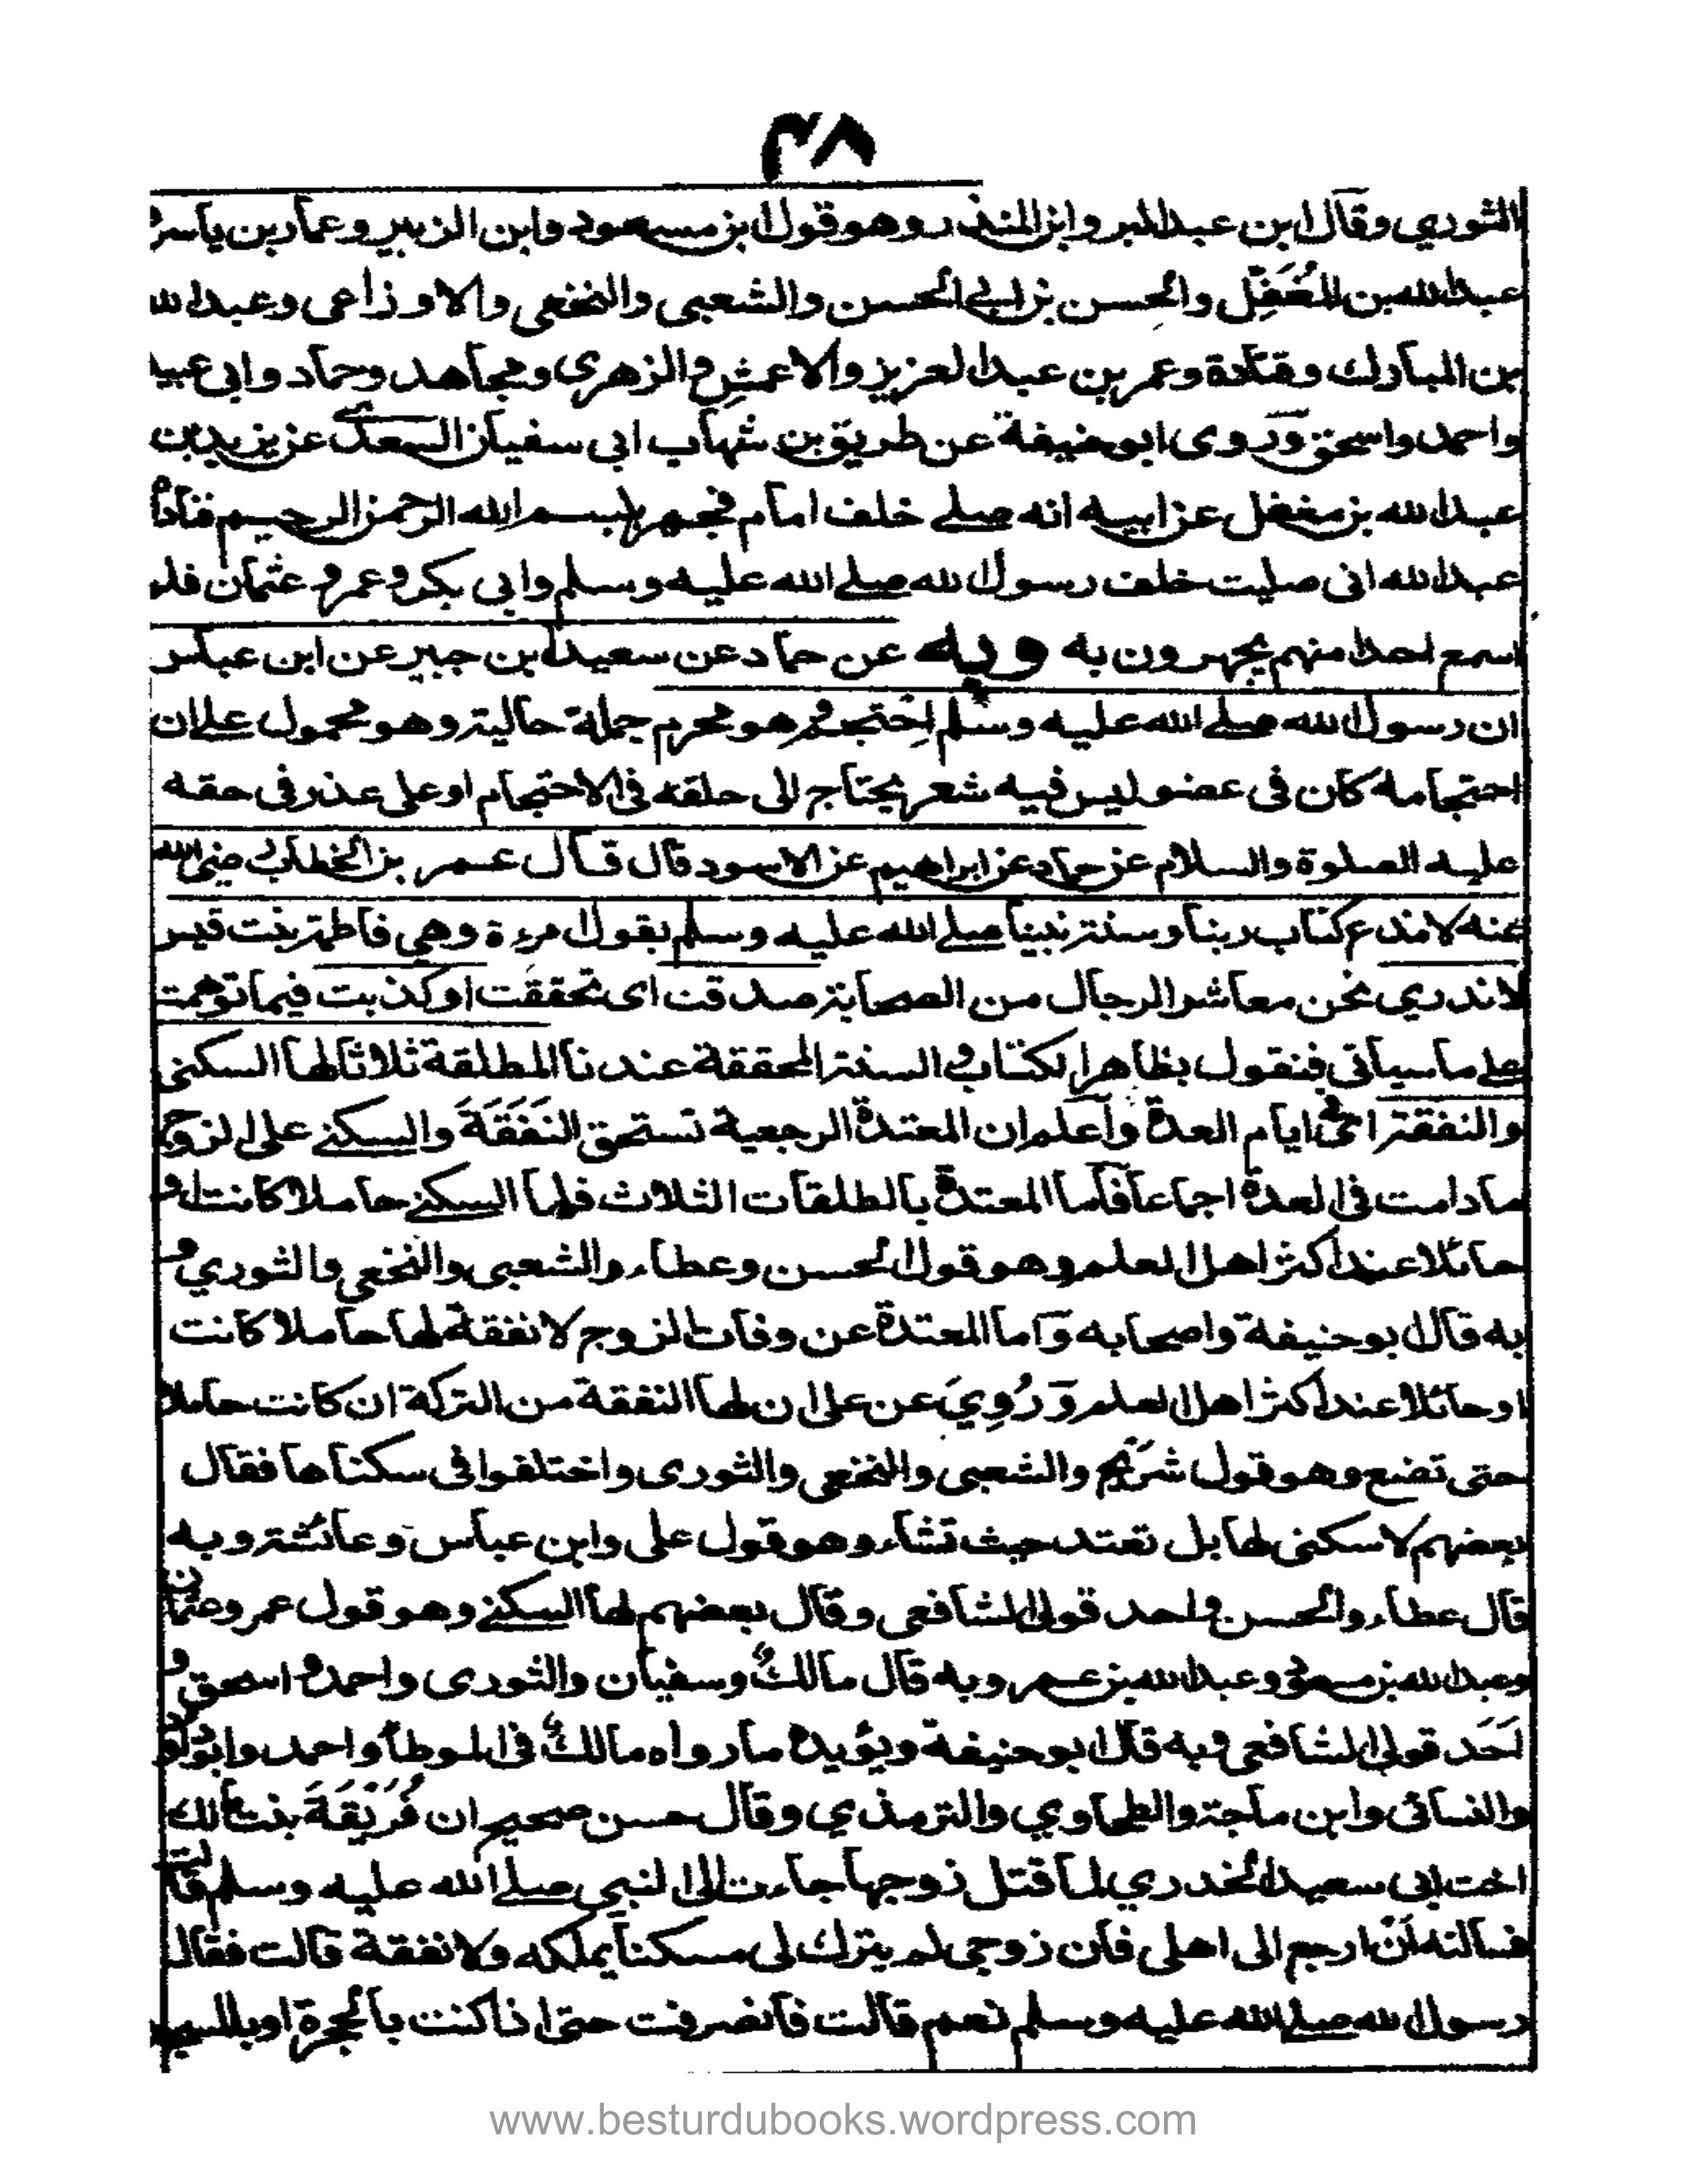 ٣٨
الثوري وقال ابن عبد البر وابن المنذر وهو قول ابن مسعود وابن الزبير وعمار بن ياسر و
عبد الله بن المُغَفَّل والحسن بن ابي الحسن والشعبي والنخعي والاوزاعي وعبد الله
بن المبارك وقتادة وعمر بن عبد العزيز والاعمش والزهري ومجاهد وحماد وابي عبيد
واحمد واسحق وروى ابو حنيفة عن طريق بن شهاب ابي سفيان السعدي عن يزيد بن
عبد الله بن مغفل عن ابيه انه صلے خلف امام فجهر ببسم الله الرحمن الرحيم فناداه
عبد الله انى صليت خلف رسول الله صلے الله عليه وسلم وابي بكر وعمر و عثمان فلم
اسمع احدا منهم يجهرون به وبه عن حماد عن سعيد ابن جبير عن ابن عباس
ان رسول الله صلے الله عليه وسلم اِحْتجم وهو محرم جملة حالية وهو محمول علے ان
احتجامه كان فى عضو ليس فيه شعر يحتاج الى حلقه فى الاحتجام او على عذر فى حقه
عليه الصلوة والسلام عن حماد عن ابراهيم عن الاسود قال قال عمر بن الخطاب رضي الله
عنه لا ندع كتاب ربنا وسنة نبينا صلے الله عليه وسلم بقول امرءة وهي فاطمة بنت قيس
لا ندري نحن معاشر الرجال من الصحابة صدقت اى تحققت او كذبت فيما توهمت
علے ما سياتى فنقول بظاهر الكتاب و السنة المحققة عندنا المطلقة ثلاثا لها السكنى
والنفقة اى فى ايام العدة واعلم ان المعتدة الرجعية تستحق النَفَقَةَ والسكنے على الزوج
ما دامت فى العدة اجماعا فأما المعتدة بالطلقات الثلاث فلها السكنے حاملا كانت او
حائلا عند اكثر اهل العلم وهو قول الحسن وعطاء والشعبي والنخعي والثوري و
به قال ابو حنيفة واصحابه وَاما المعتدة عن وفات الزوج لا نفقة لها حاملا كانت
او حائلا عند اكثر اهل العلم وَ رُوِيَ عن على ان لها النفقة من التركة ان كانت حاملا
حتى تضع وهو قول شريح والشعبي والنخعي والثورى واختلفوا فى سكناها فقال
بعضهم لا سكنى لها بل تعتد حيث تشاء وهو قول على وابن عباس وعائشة وبه
قال عطاء والحسن واحد قولى الشافعى وقال بعضهم لها السكنے وهو قول عمر وعثمان
وعبد الله بن مسعود وعبد الله بن عمر وبه قال مالك وسفيان والثورى واحمد و اسحق و
اَحَد قولى الشافعى وبه قال ابو حنيفة ويؤيده ما رواه مالك فى الموطأ واحمد وابو داود
والنسائى وابن ماجة والطحاوي والترمذي وقال حسن صحيح ان فُرَيْقَةَ بنت مالك
اخت ابى سعيد الخدري لما قتل زوجها جاءت الى النبي صلے الله عليه وسلم قالت
فسالته اَنْ ارجع الى اهلى فان زوجى لم يترك لى مسكنا يملكه ولا نفقة قالت فقال
رسول الله صلے الله عليه وسلم نعم قالت فانصرفت حتى اذا كنت بالحجرة او بالمسجد
www.besturdubooks.wordpress.com